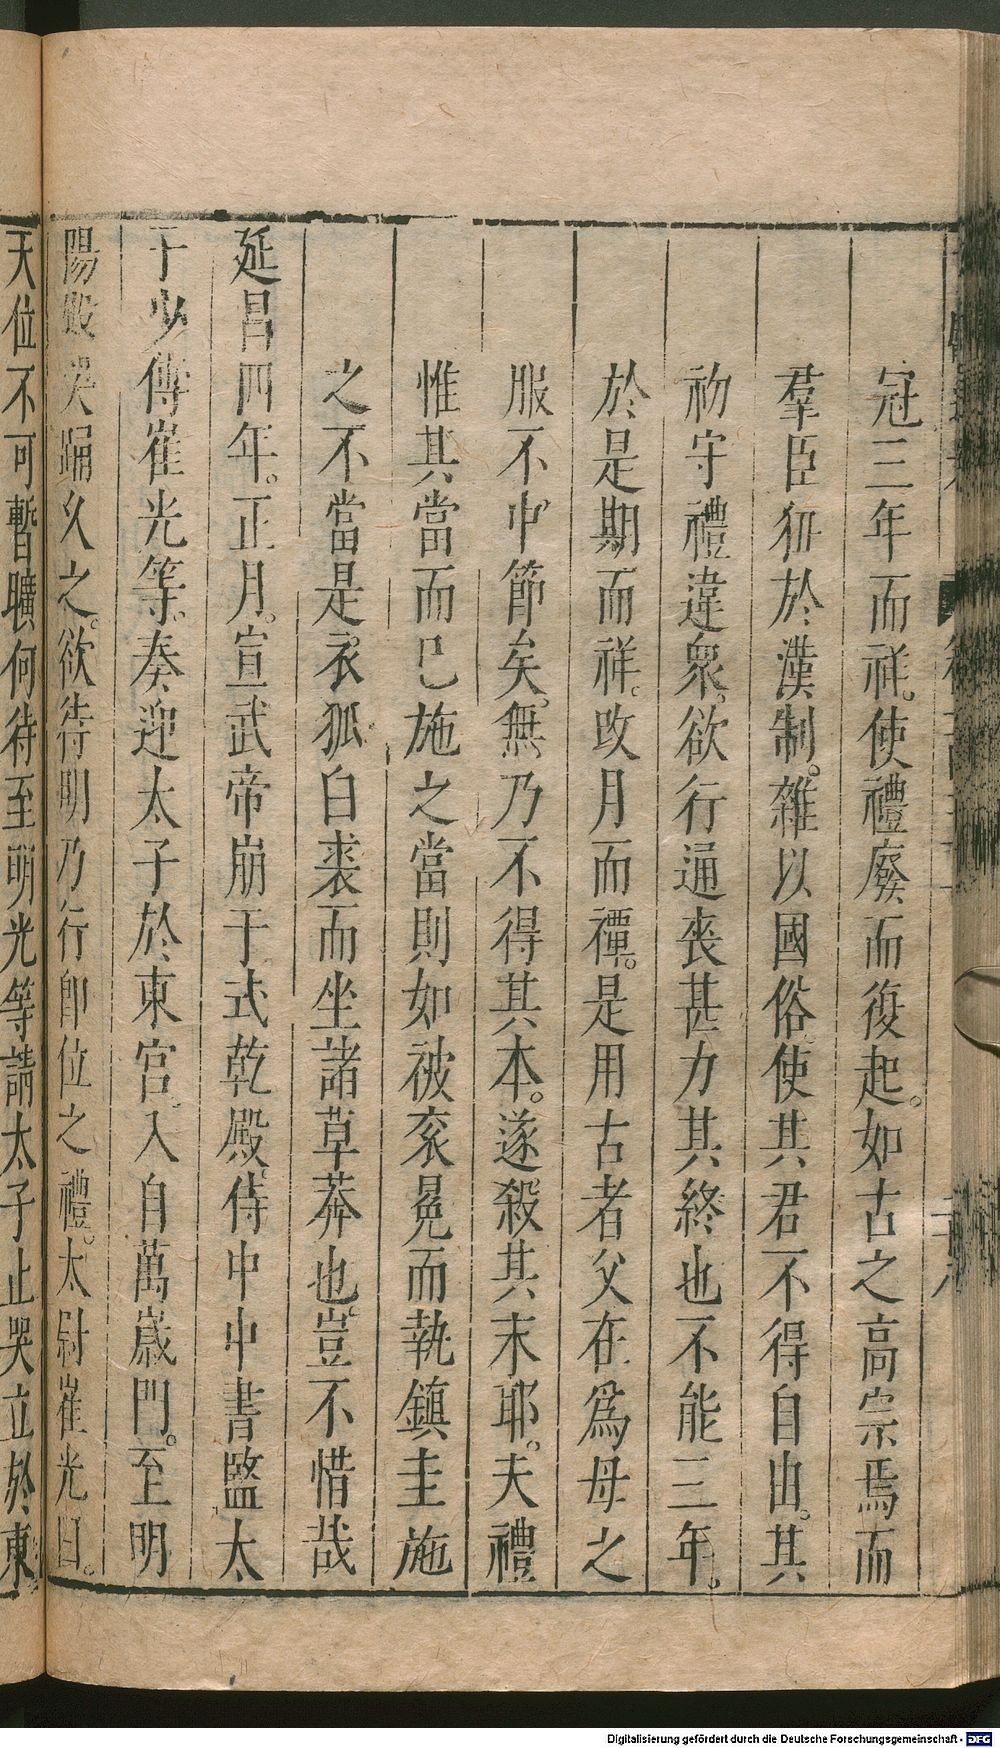 冠三年而祥。使禮廢而復起。如古之高宗焉而
羣臣狃於漢制。雜以國俗使其君不得自由。其
初守禮違衆。欲行通喪甚力其終也不能三年。
於是期而祥。改月而禫。是用古者父在爲母之
服不中節矣。無乃不得其本。遂殺其末耶。夫禮
惟其當而已施之當則如被衮冕而執鎮圭施
之不當是衣狐白裘而坐諸草莽也。豈不惜哉
延昌四年。正月。宣武帝崩于式乾殿。侍中中書監太
子少傅崔光等。奏迎太子於東宮。入自萬歲門。至明
陽殿哭踊久之。欲待明乃行即位之禮。太尉崔光曰。
天位不可暫曠何待至明光等請太子止哭立於東
Digitalisierung gefördert durch die Deutsche Forschungsgemeinschaft - DFG